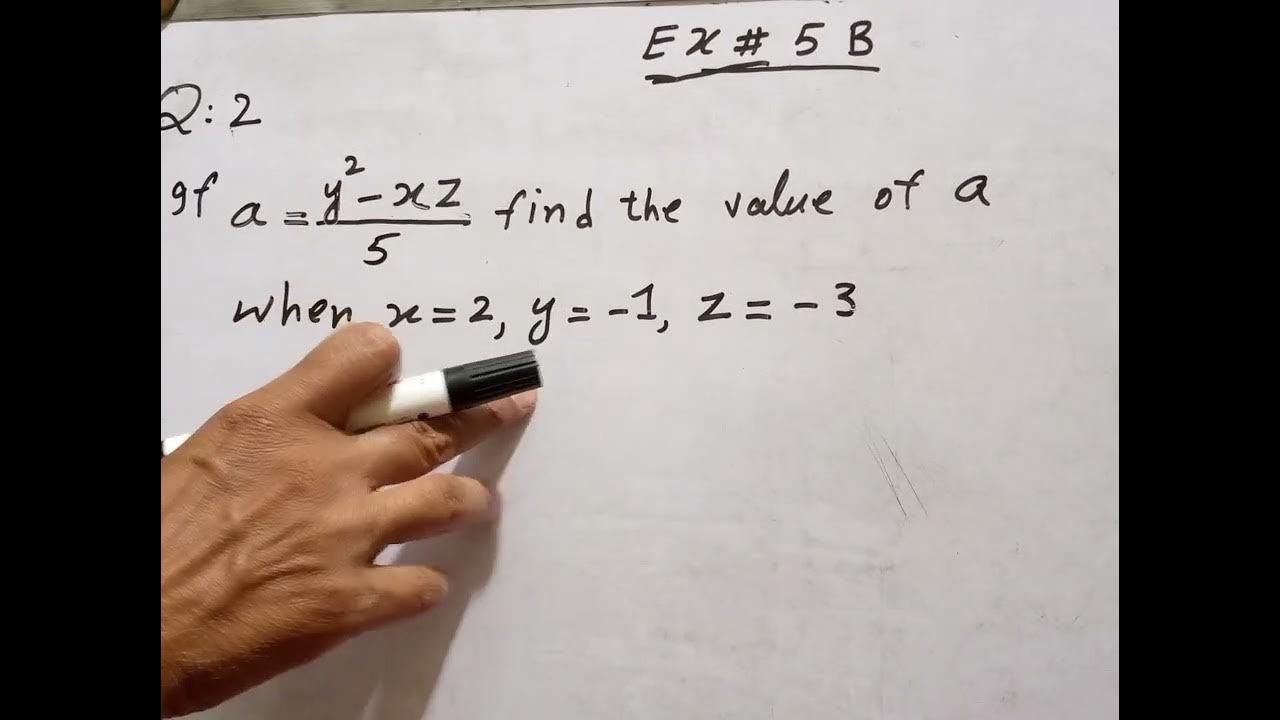 Ex # 5 B
Q: 2
If a = y² - xz / 5 find the value of a
when x = 2, y = -1, z = -3